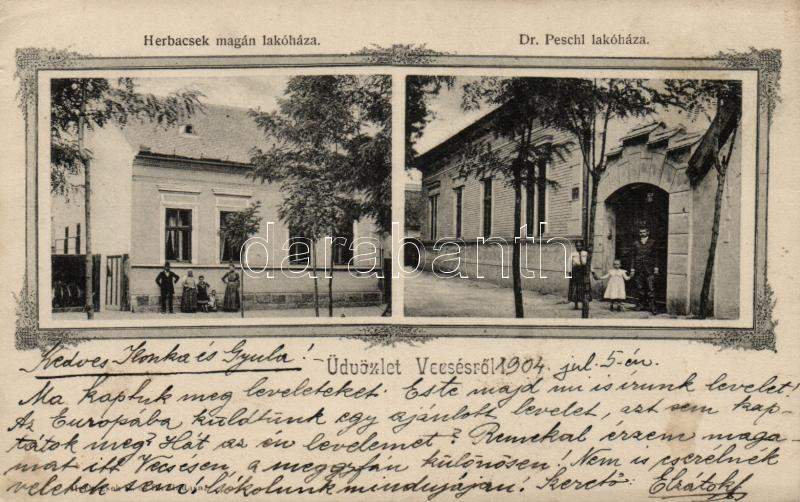 Herbacsek magán lakóháza.
Dr. Peschl lakóháza.
darabanth
Kedves Ilonka és Gyula! -
Üdvözlet Vecsésről 1904. jul. 5-én.
Ma kaptuk meg leveleteket. Este majd mi is irunk levelet!
Az Európába küldtünk egy ajánlott levelet, azt sem kap-
tátok meg? Hát az én levelemet? Remekül érzem maga-
mat itt Vecsésen, a meggyfán különösen! Nem is cserélnék
veletek sem! Csókolunk mindnyájan! Szerető